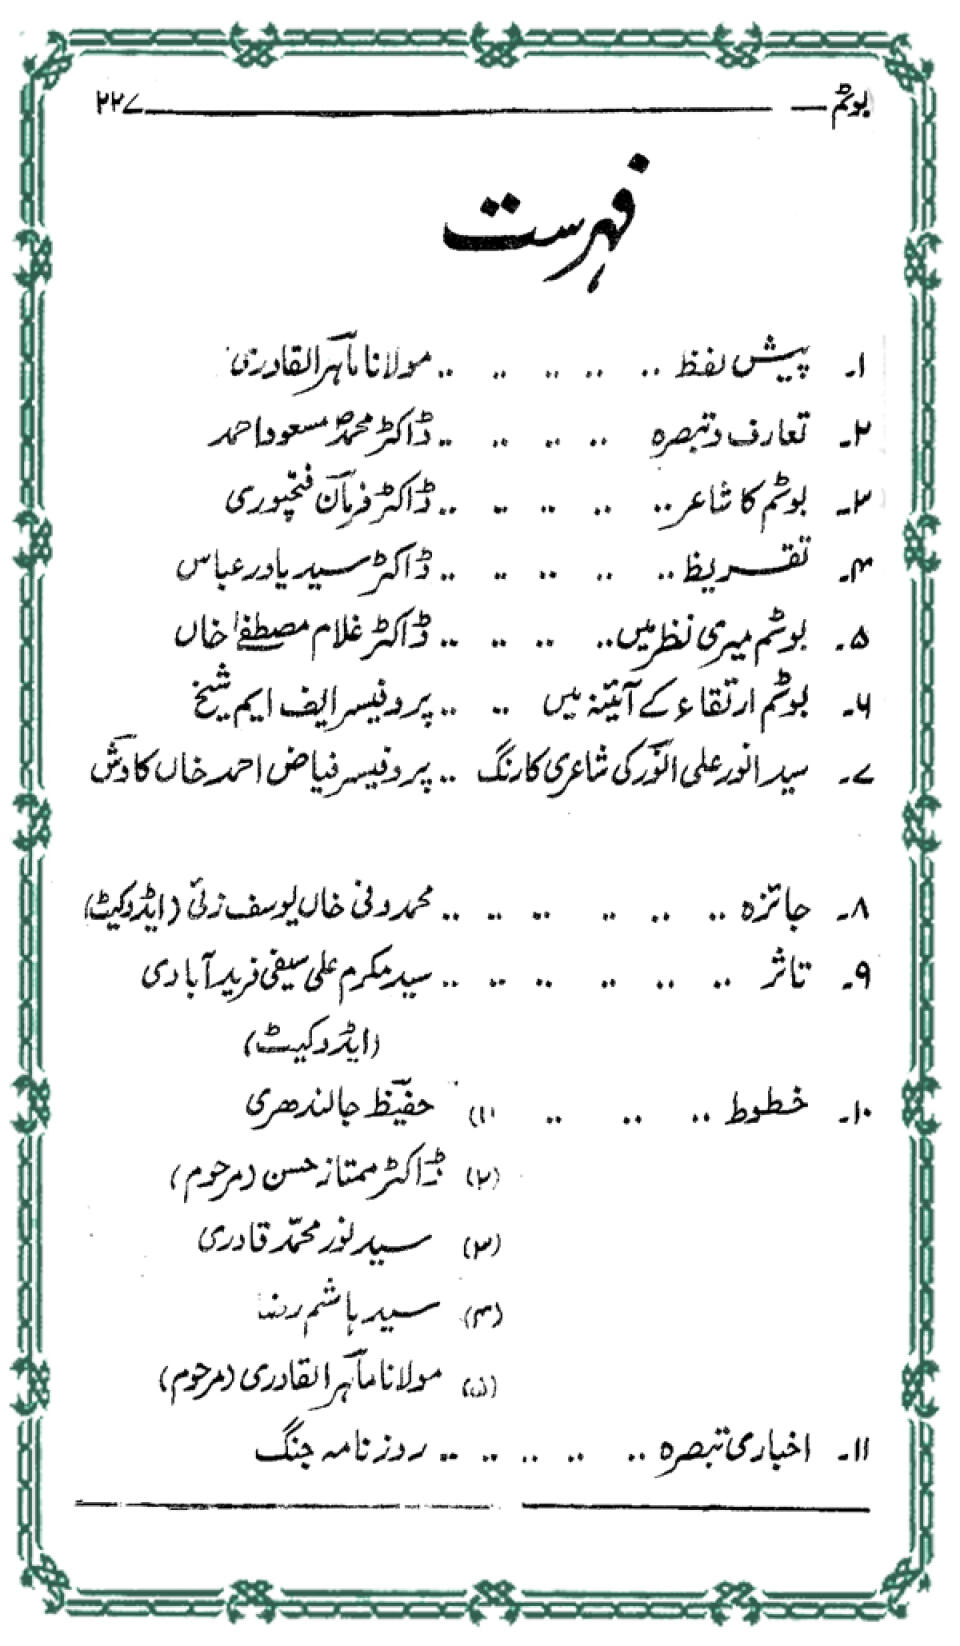 بوٹم ۲۲۷
فہرست
۱۔ پیش لفظ .. .. .. .. .. مولانا ماہر القادری
۲۔ تعارف و تبصرہ .. .. .. .. ڈاکٹر محمدؐ مسعود احمد
۳۔ بوٹم کا شاعر .. .. .. .. .. ڈاکٹر فرمان فتحپوری
۴۔ تقریظ .. .. .. .. .. ڈاکٹر سید یاور عباس
۵۔ بوٹم میری نظر میں .. .. .. .. ڈاکٹر غلام مصطفےٰ خاں
۶۔ بوٹم ارتقاء کے آئینہ میں .. .. پروفیسر ایف ایم شیخ
۷۔ سید انور علی انورؔ کی شاعری کا رنگ .. پروفیسر فیاض احمد خاں کاوشؔ
۸۔ جائزہ .. .. .. .. .. .. محمد وفی خاں یوسف زئی (ایڈوکیٹ)
۹۔ تاثر .. .. .. .. .. .. سید مکرم علی سیفی فریدآبادی
(ایڈوکیٹ)
۱۰۔ خطوط .. .. .. (۱) حفیظؔ جالندھری
(۲) ڈاکٹر ممتاز حسن (مرحوم)
(۳) سید نور محمّد قادری
(۴) سید ہاشم رضا
(۵) مولانا ماہرؔ القادری (مرحوم)
۱۱۔ اخباری تبصرہ .. .. .. .. .. روزنامہ جنگ